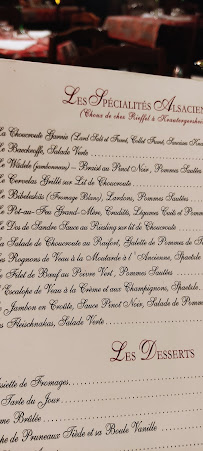 Les Spécialités Alsacien
(Choux de chez Rieffel à Krautergershei
La Choucroute Garnie (Lard Salé et Fumé, Collet Fumé, Saucisse
Le Baeckeoffe, Salade Verte
Le Wädele (jambonneau) - Braisé au Pinot Noir, Pommes Sautées
Le Cervelas Grillé sur Lit de Choucroute
Le Bibelaskäs (Fromage Blanc), Lardons, Pommes Sautées
Le Pot-au-Feu Grand-Mère, Crudités, Légumes Cuits et Pomme
Le Dos de Sandre Sauce au Riesling sur lit de Choucroute
La Salade de Choucroute au Raifort, Galette de Pommes de
Rognons de Veau à la Moutarde à l'Ancienne, Spaetzle
Le Filet de Bœuf au Poivre Vert, Pommes Sautées
l'Escalope de Veau à la Crème et aux Champignons, Spaetzle
Jambon en Croûte, Sauce Pinot Noir, Salade de Pomme
Fleischnakas, Salade Verte
Les Desserts
siette de Fromages
Tarte du Jour
me Brûlée
che de Pruneaux Tiède et sa Boule Vanille